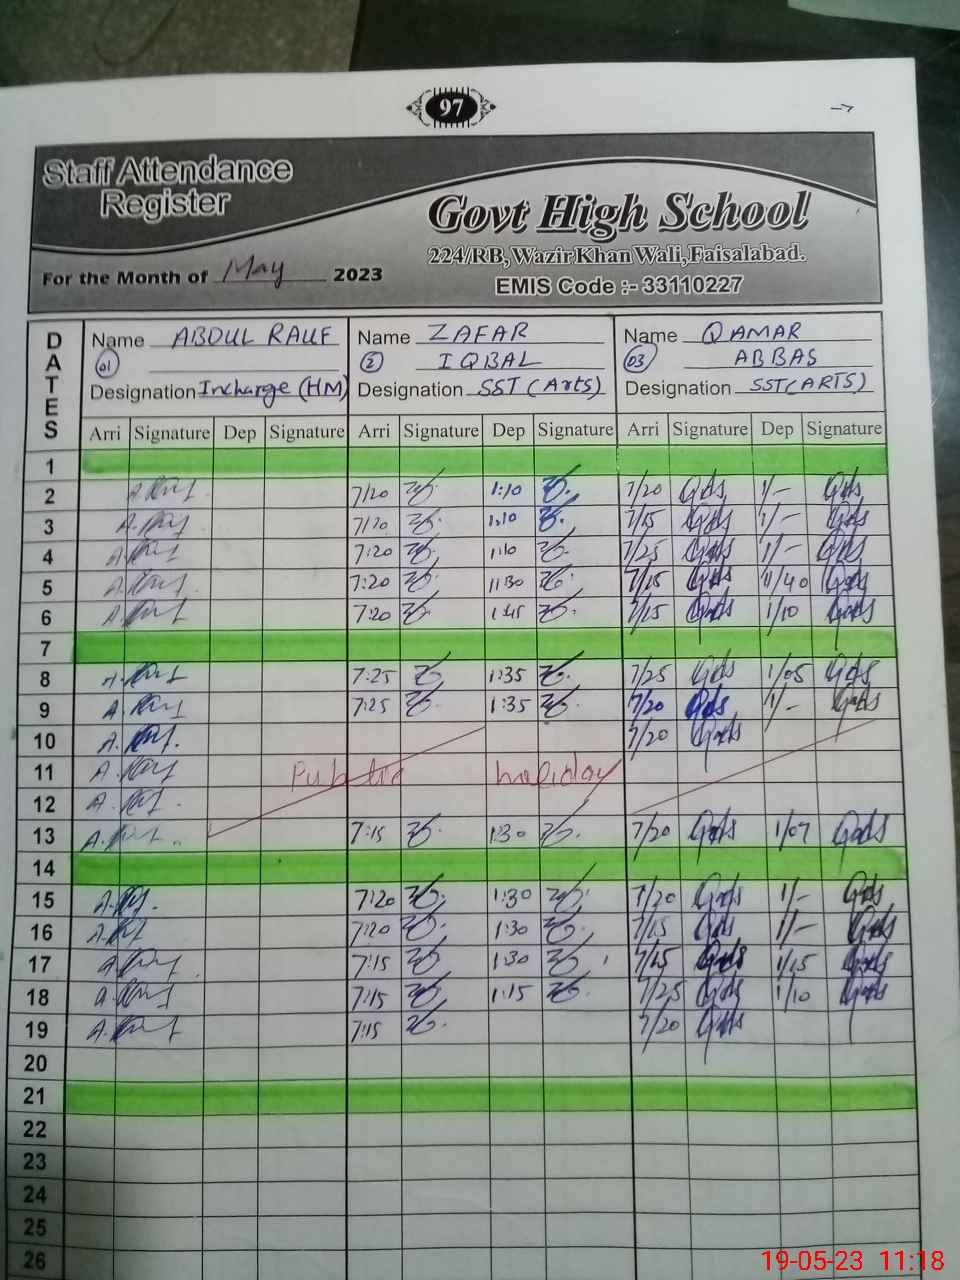 97
Staff Attendance
Register
Govt High School
224/RB, Wazir Khan Wali, Faisalabad.
For the Month of May 2023
EMIS Code :- 33110227
DATES
Name ABDUL RAUF
01
Designation Incharge (HM)
Name ZAFAR
2 IQBAL
Designation SST (Arts)
Name QAMAR
03 ABBAS
Designation SST (ARTS)
Arri Signature Dep Signature Arri Signature Dep Signature Arri Signature Dep Signature
1
2 7/20 1:10 7/20 1/-
3 7/20 1:10 7/15 1/-
4 7:20 1:10 7/25 1/-
5 7:20 11:30 7/15 11/40
6 7:20 1:45 7/15 1/10
7
8 7:25 1:35 7/25 1/05
9 7:25 1:35 7/20 1/-
10 7/20
11 Public holiday
12
13 7:15 1:30 7/20 1/07
14
15 7:20 1:30 7/20 1/-
16 7:20 1:30 7/15 1/-
17 7:15 1:30 7/15 1/15
18 7:15 1:15 7/25 1/10
19 7:15 7/20
20
21
22
23
24
25
26
19-05-23 11:18